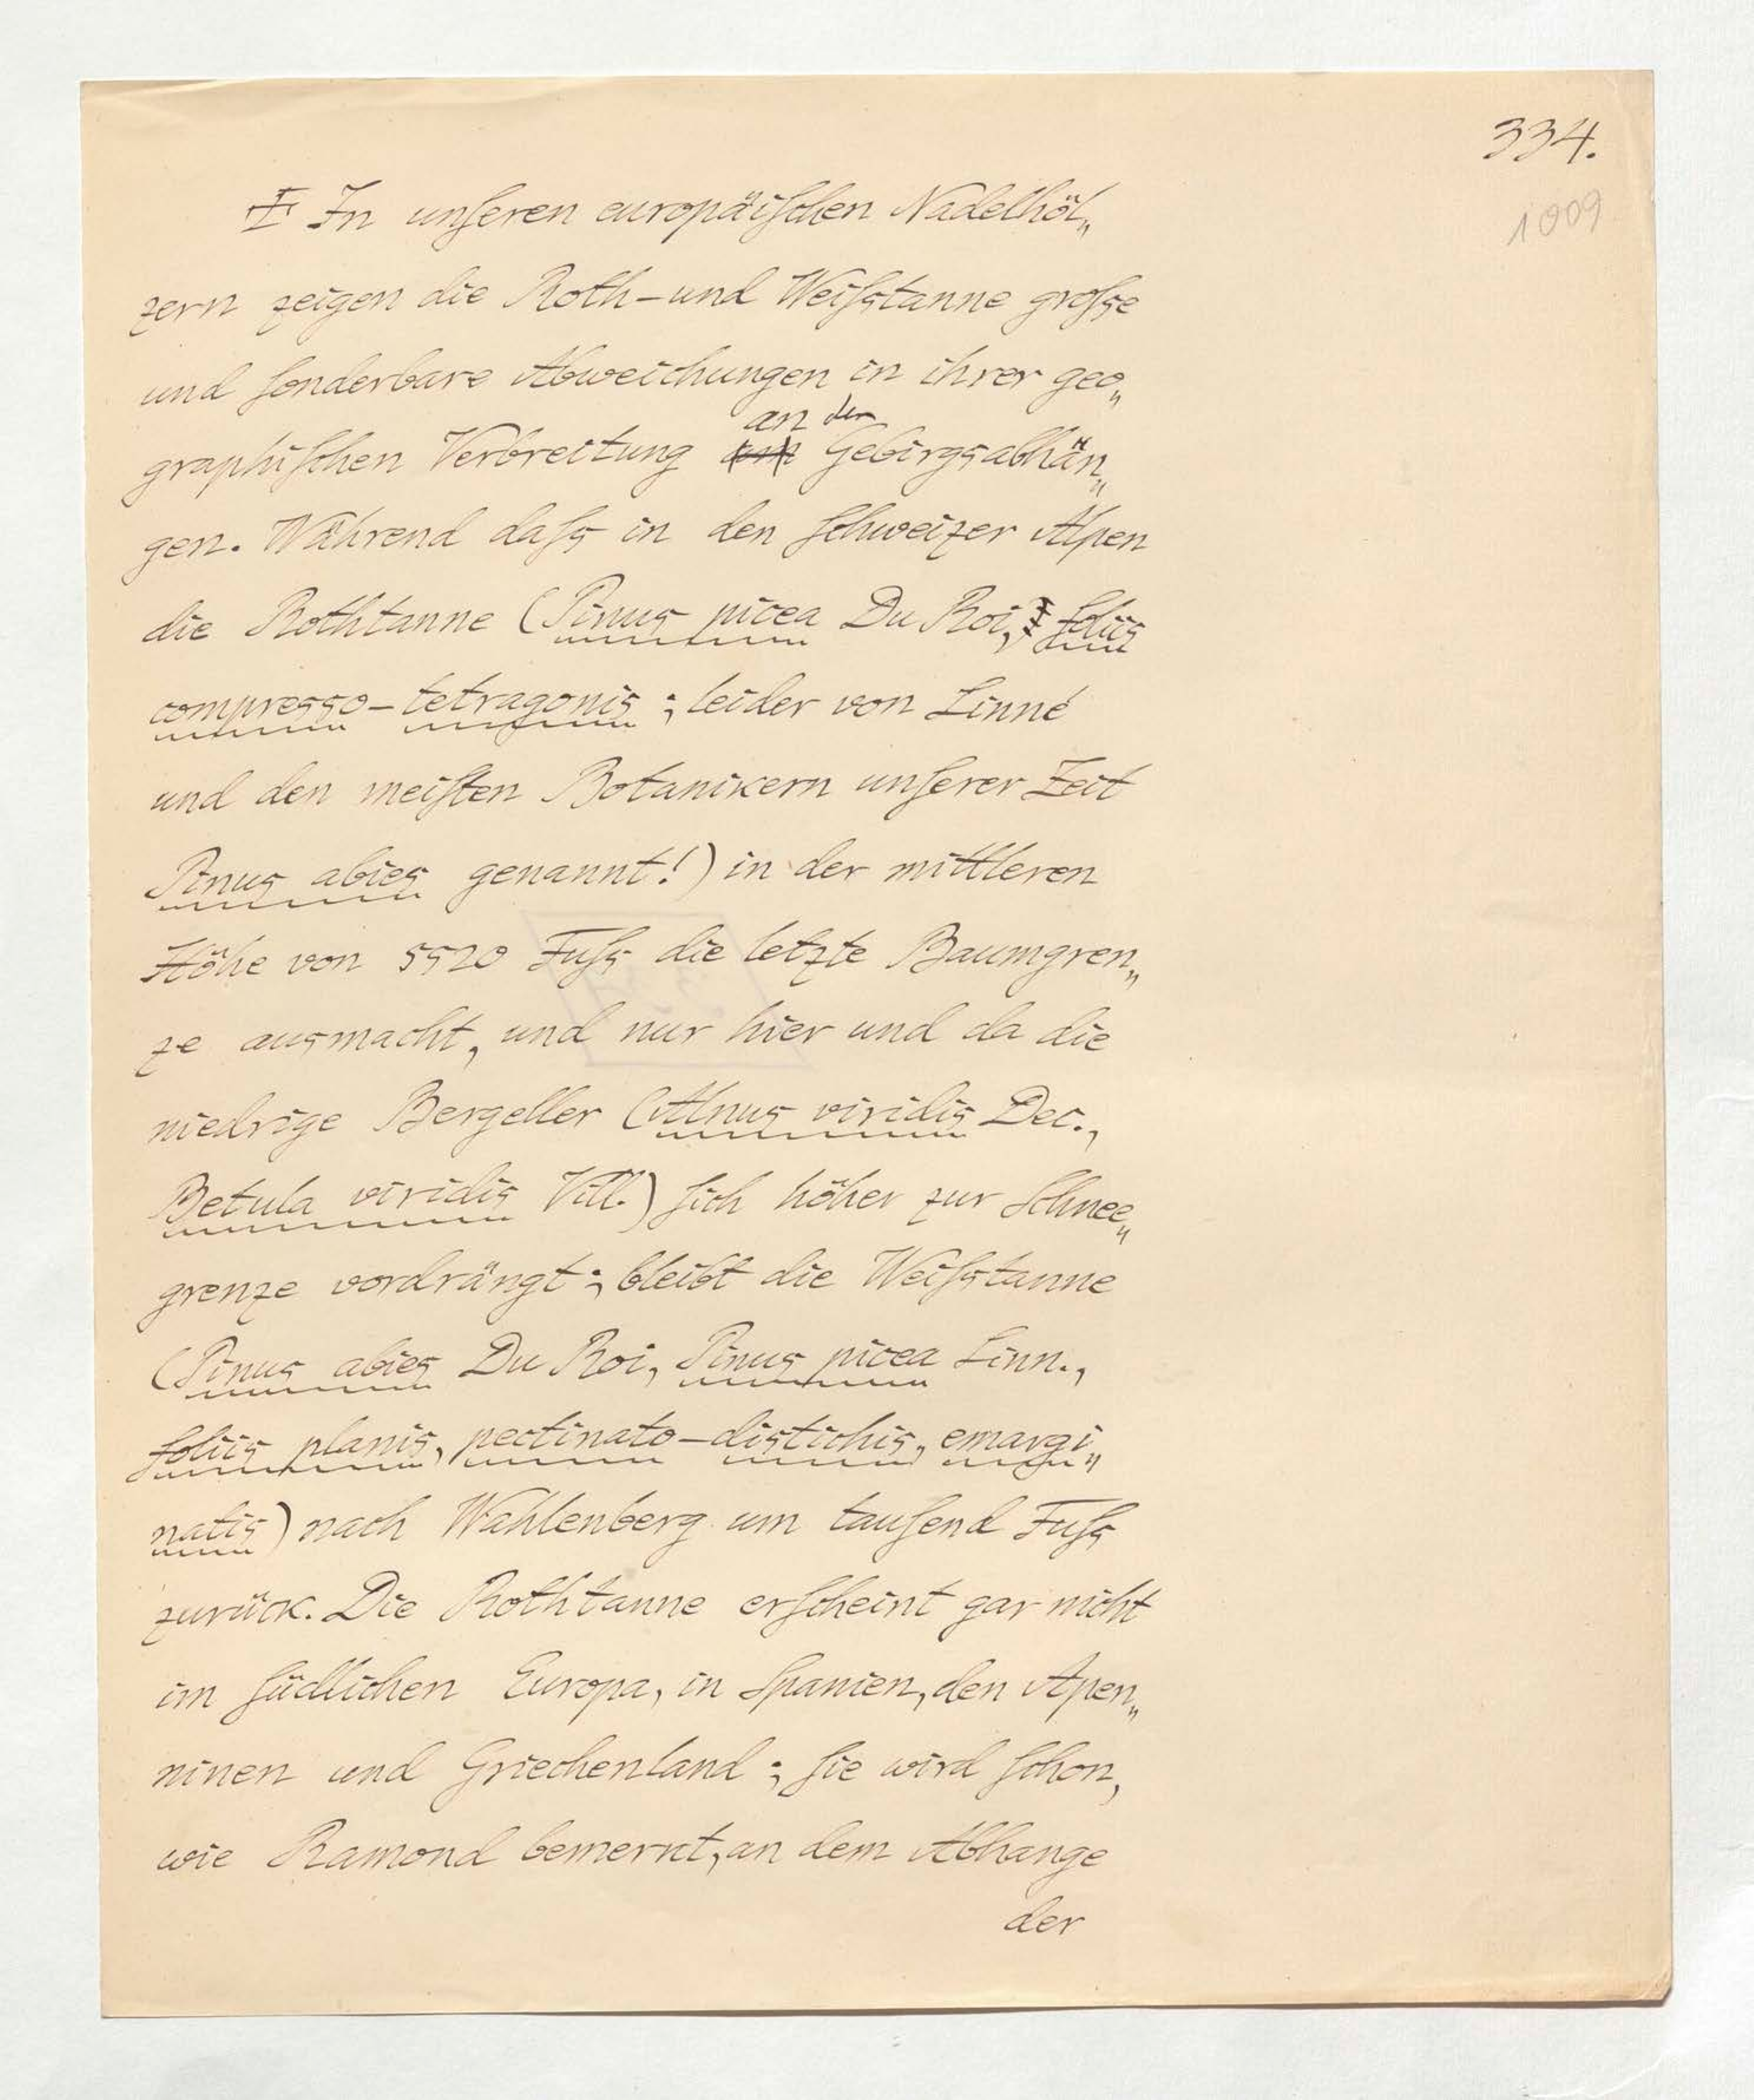 334.
1009
Ŧ In unſeren europäiſchen Nadelhöl„
zern zeigen die Roth-und Weiſstanne groſse
und ſonderbare Abweichungen in ihrer geo„
an den
graphiſchen Verbreitung am Gebirgsabhän„
gen. Während daſs in den ſchweizer Alpen
die Rothtanne (Pinus picea Du Roi, foliis
compresso-tetragonis; leider von Linné
und den meiſten Botanikern unſerer Zeit
Pinus abies genannt!) in der mittleren
Höhe von 5520 Fuſs die letzte Baumgren„
ze ausmacht, und nur hier und da die
niedrige Bergeller (Alnus viridis Dec.,
Betula viridis Vill.) ſich höher zur Schnee„
grenze vordrängt; bleibt die Weiſstanne
(Pinus abies Du Roi, Pinus picea Linn.,
foliis planis, pectinato-distichis, emargi„
natis) nach Wahlenberg um tauſend Fuſs
zurück. Die Rothtanne erſcheint gar nicht
im ſüdlichen Europa, in Spanien, den Apen„
ninen und Griechenland; ſie wird ſchon,
wie Ramond bemerkt, an dem Abhange
der